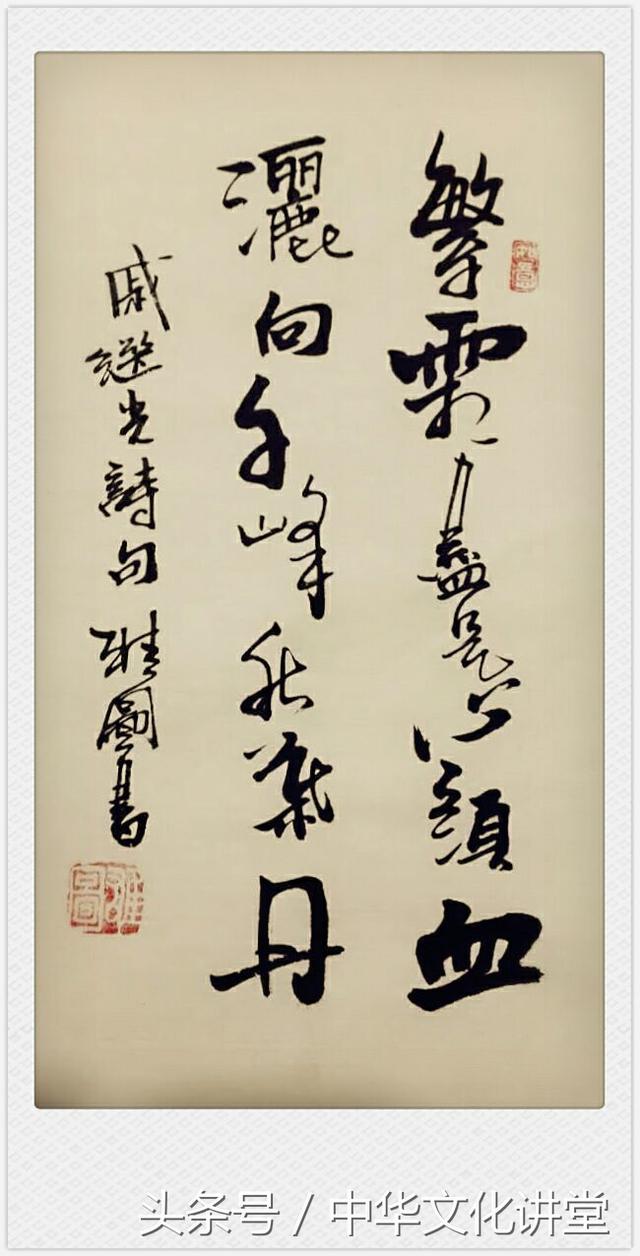 繁霜盡是心頭血
灑向千峰秋葉丹
戚繼光詩句 圖書
头条号 / 中华文化讲堂